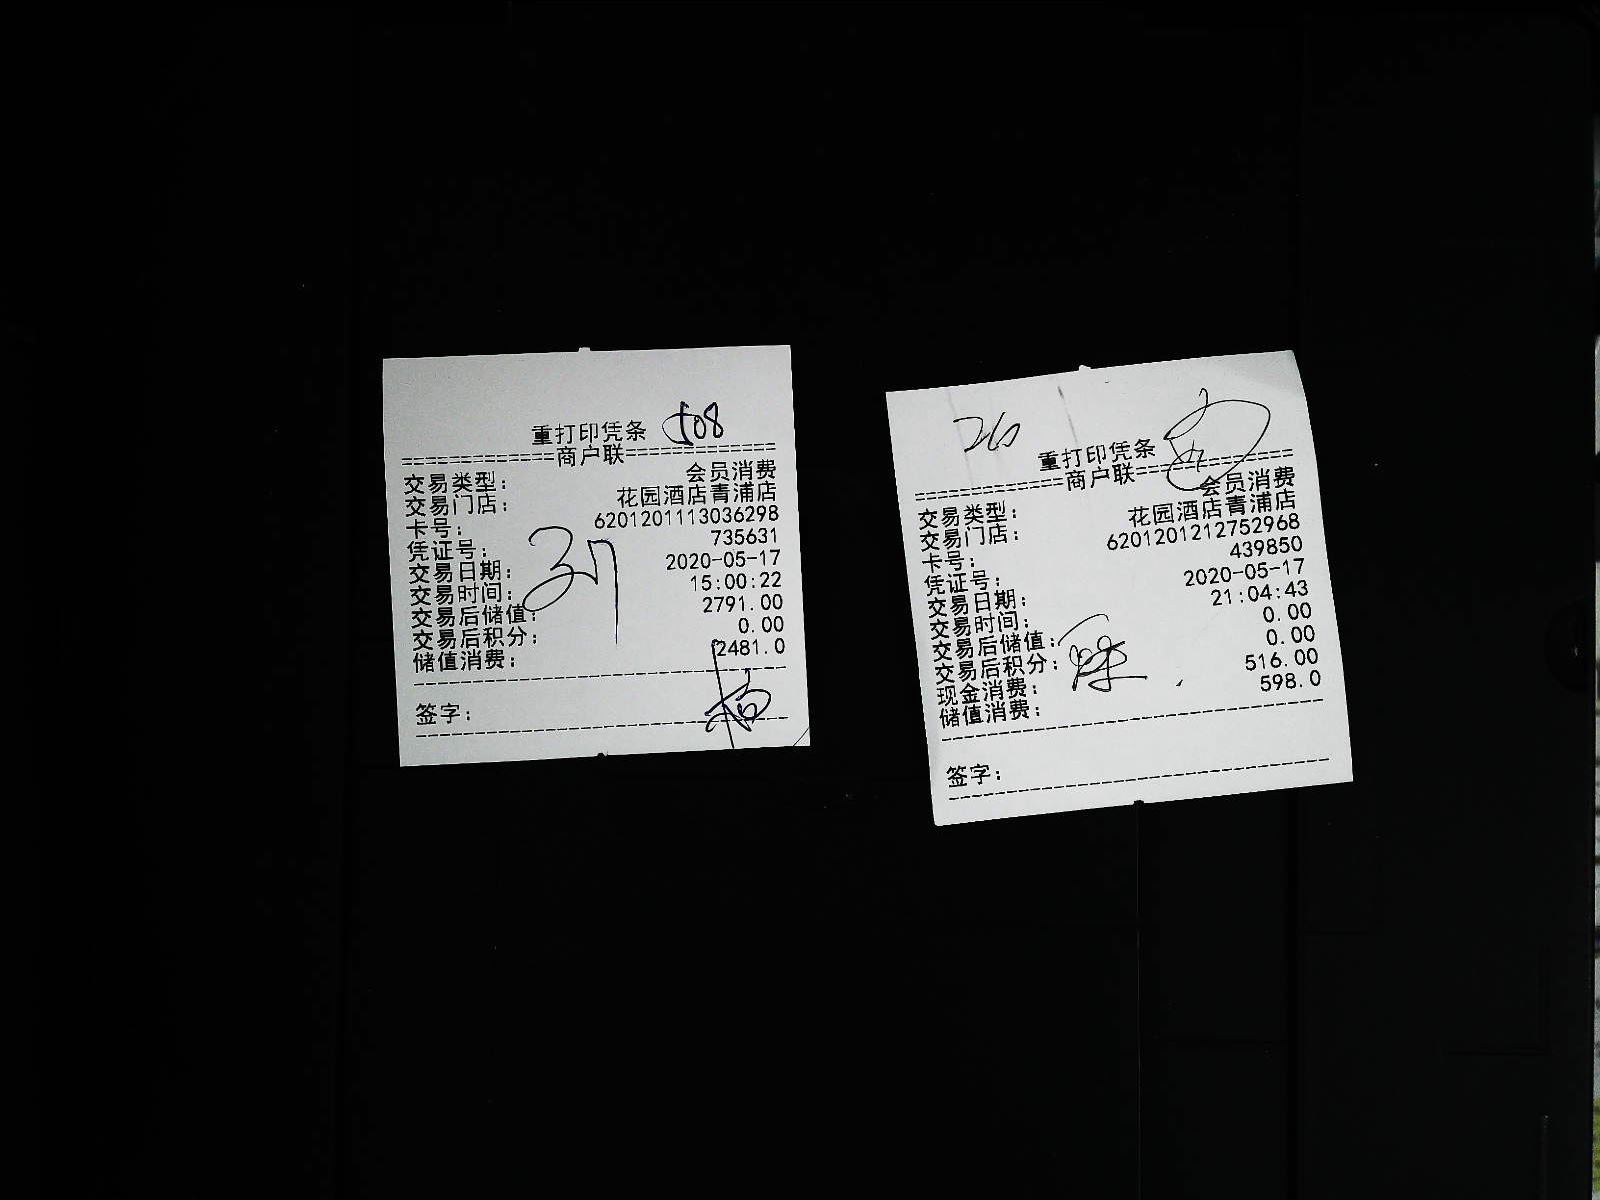 508
重打印凭条
============商户联============
交易类型： 会员消费
交易门店： 花园酒店青浦店
卡号： 6201201113036298
凭证号： 735631
交易日期： 2020-05-17
交易时间： 15:00:22
交易后储值： 2791.00
交易后积分： 0.00
储值消费： 2481.0
签字：
重打印凭条
============商户联============
交易类型： 会员消费
交易门店： 花园酒店青浦店
卡号： 6201201212752968
凭证号： 439850
交易日期： 2020-05-17
交易时间： 21:04:43
交易后储值： 0.00
交易后积分： 0.00
现金消费： 516.00
储值消费： 598.0
签字：